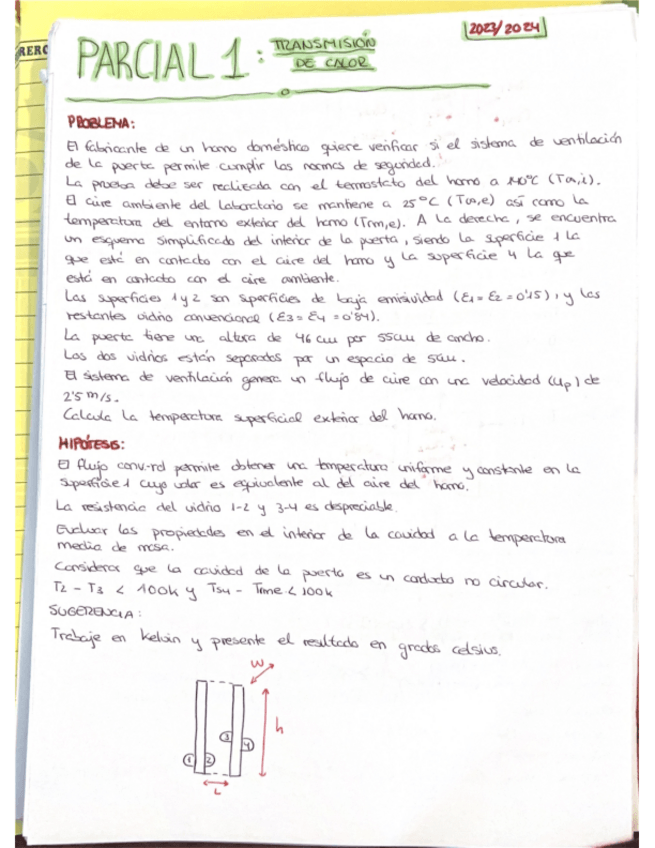 2023/2024
RERO
PARCIAL 1: TRANSMISIÓN
DE CALOR
PROBLEMA:
El fabricante de un horno doméstico quiere verificar si el sistema de ventilación
de la puerta permite cumplir las normas de seguridad.
La prueba debe ser realizada con el termostato del horno a ºC (T∞,i).
El aire ambiente del laboratorio se mantiene a 25ºC (T∞,e) así como la
temperatura del entorno exterior del horno (Trm,e). A la derecha, se encuentra
un esquema simplificado del interior de la puerta, siendo la superficie 1 la
que está en contacto con el aire del horno y la superficie 4 la que
está en contacto con el aire ambiente.
Las superficies 1 y 2 son superficies de baja emisividad (ε1 = ε2 = 0'15), y las
restantes vidrio convencional (ε3 = ε4 = 0'84).
La puerta tiene una altura de 46 cm por 55cm de ancho.
Los dos vidrios están separados por un espacio de 5cm.
El sistema de ventilación genera un flujo de aire con una velocidad (up) de
2'5 m/s.
Calcula la temperatura superficial exterior del horno.
HIPÓTESIS:
El flujo conv-rd permite obtener una temperatura uniforme y constante en la
superficie 1 cuyo valor es equivalente al del aire del horno.
La resistencia del vidrio 1-2 y 3-4 es despreciable.
Evaluar las propiedades en el interior de la cavidad a la temperatura
media de masa.
Considerar que la cavidad de la puerta es un conducto no circular.
T2 - T3 < 100k y Ts4 - Trme < 100k
SUGERENCIA:
Trabaje en Kelvin y presente el resultado en grados celsius.
W
h
3
4
1
2
L